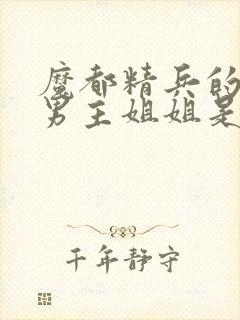 魔都精兵的
男主姐姐是
千年静守